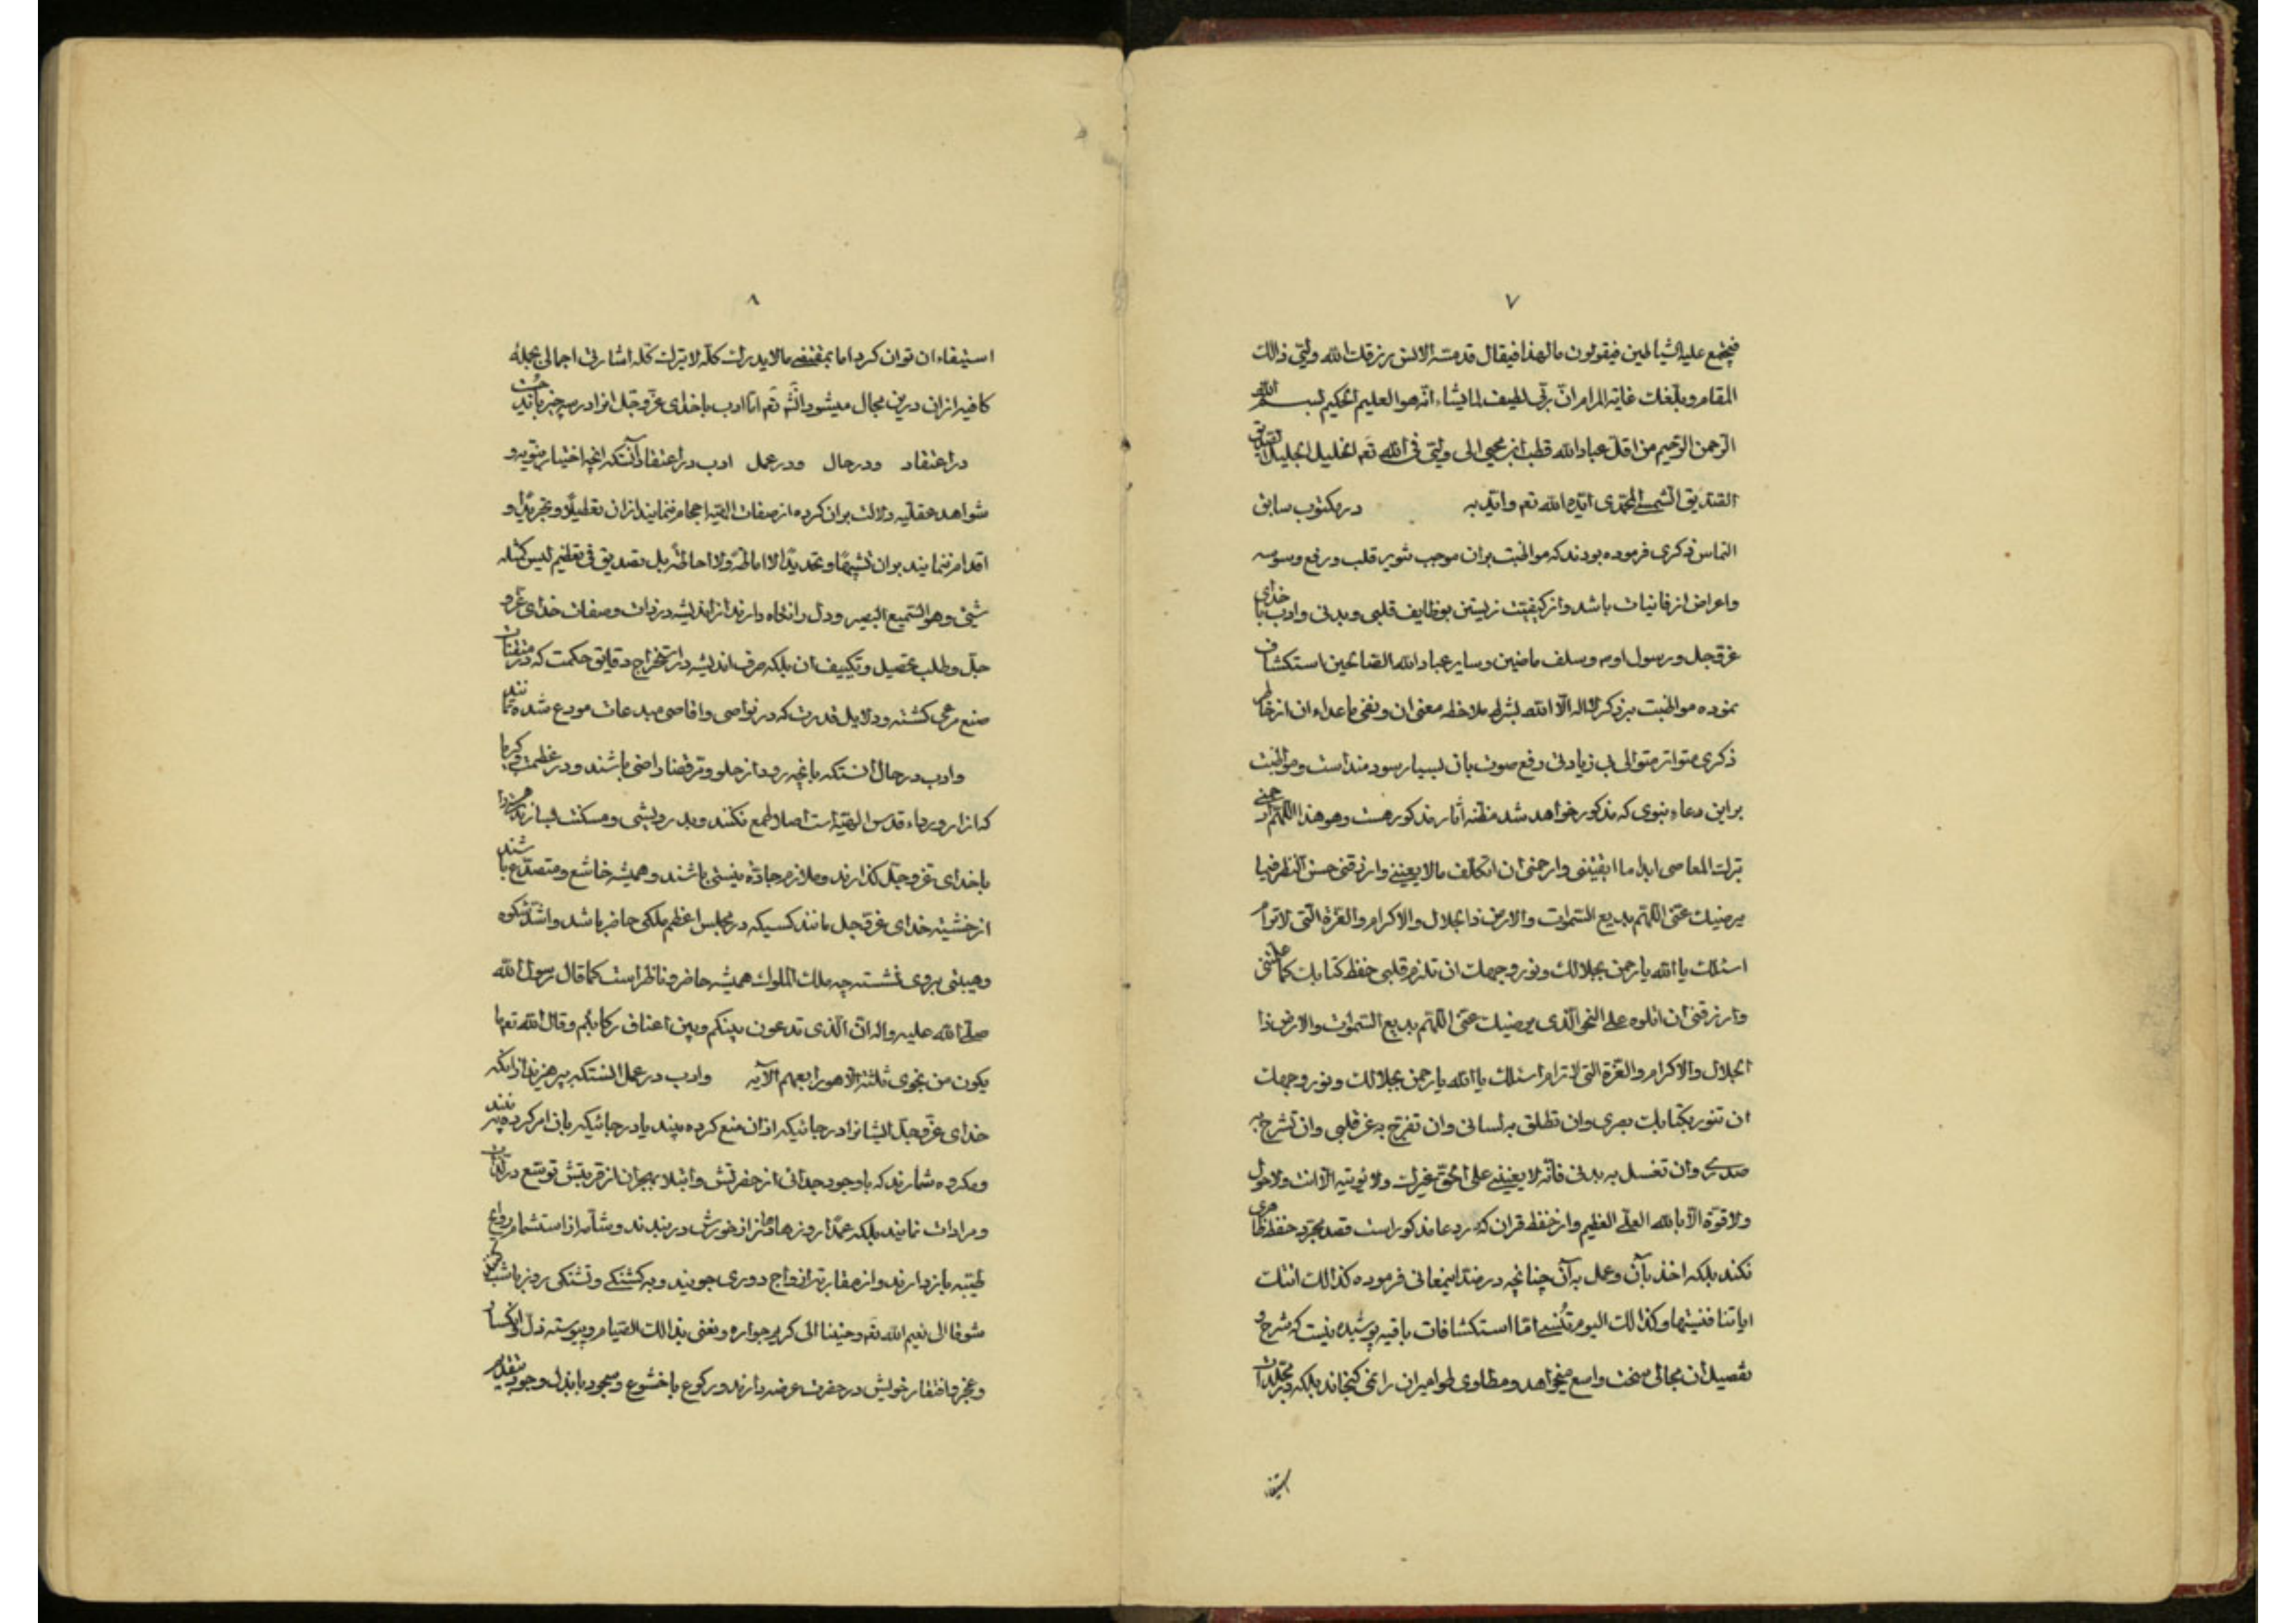 ٧
فیجتمع علیه الشیاطین فیقولون ما لهذا فیقال قد مسّه الانس رزقک الله ولیّی ذالک
المقام و بلّغک غایة المرام انّ ربّی لطیف لما یشاء انّه هو العلیم الحکیم بسم الله
الرّحمن الرّحیم من اقلّ عباد الله قطب ابن محیی الی ولیّی فی الله تعم الخلیل الجلیل
الشمسی المحمّدی ایّده الله تعم و ایّد به در مکتوب سابق
التماس ذکری فرموده بودند که مواظبت بران موجب تنویر قلب و رفع وسوسه
و اعراض از فانیات باشد و از کیفیّت زیستن بوظایف قلبی و بدنی و ادب با خدای
عزّ و جل و رسول او ص و سلف ماضین و سایر عباد الله الصّالحین استکشاف
نموده مواظبت بر ذکر لا اله الّا الله بشرط ملاحظه معنی ان و نفی ما عداء ان از خاطر
ذکری متواتر متوالی بی زیادتی رفع صوت بان بسیار سودمند است و مواظبت
براین دعاء نبوی که مذکور خواهد شد مظنه اثار مذکوره هست و هو هذا اللّهمّ ارحمنی
بترک المعاصی ابدا ما ابقیتنی وارحمنی ان اتکلّف مالا یعنینی وارزقنی حسن النّظر فیما
یرضیک عنّی اللّهمّ بدیع السّموات والارض ذا الجلال والاکرام والعزّة الّتی لا ترام
اسئلک یا الله یا رحمن بجلالک و نور وجهک ان تلزم قلبی حفظ کتابک کما علّمتنی
وارزقنی ان اتلوه علی النحو الّذی یرضیک عنّی اللّهمّ بدیع السّموات والارض ذا
الجلال والاکرام والعزّة التی لا ترام اسئلک یا الله یا رحمن بجلالک و نور وجهک
ان تنور بکتابک بصری وان تطلق به لسانی وان تفرّج به عن قلبی وان تشرح به
صدری وان تغسل به بدنی فانّه لا یعیننی علی الحقّ غیرک ولا یؤتیه الّا انت ولا حول
ولا قوّة الّا بالله العلّی العظیم و از حفظ قران که در دعا مذکور است قصد مجرّد حفظ ظاهری
نکند بلکه اخذ بآن و عمل به آن چنانچه در ضدّ اینمعانی فرموده کذالک اتتک
ایاتنا فنسیتها و کذالک الیوم تُنسی امّا استکشافات باقیه پوشیده نیست که شرح و
تفصیل ان مجالی سخت واسع میخواهد و مطاوی طوامیر ان را نمی کنجاند بلکه در مجلّدات
استیفاء
٨
استیفاء ان توان کرد اما بمقتضی مالا یدرک کلّه لا یترک کلّه اشارتی اجمالی بجملهٔ
کافیه ازان درین مجال میشود انشآء تعم امّا ادب با خدای عزّ و جل افراد در سه چیز باید جُست
در اعتقاد و در حال و در عمل ادب در اعتقاد آنستکه انچه اخبار نبویه و
شواهد عقلیّه دلالت بران کرده از صفات الهیّه احجام ننمایند ازان تعطیلًا و تجریدًا و
اقدام ننمایند بران تشبیهًا و تحدیدًا لا اماطةً ولا احاطةً بل تصدیق فی تعظیم لیس کمثله
شئ وهو السّمیع البصیر و دل را نکاه دارند از اندیشه در ذات و صفات خدای عزّ و
جلّ و طلب تحصیل و تکییف ان بلکه صرف اندیشه در استخراج دقایق حکمت که در متقنات
صنع مرعی کشته و دلایل قدرت که در نواصی و اقاصی مبدعات مودع شده نمایند
و ادب در حال انستکه بانچه رود از حلو و مرّ قضا راضی باشند و در عظمت و کبریا
که ازار و رداء قدس الهیّه است اصلا طمع نکنند و بدرویشی و مسکنت بسازند
با خدای عزّ و جلّ کذارند و ملازم جادّه نیستی باشند و همیشه خاشع و متصدّع باشند
از خشیته خدای عزّ و جل مانند کسیکه در مجلس اعظم ملکی حاضر باشد و اشدّ شکوه
و هیبتی بروی نشسته چه ملک الملوک همیشه حاضر و ناظر است کما قال رسول الله
صلّی الله علیه و اله انّ الّذی تدعون بینکم و بین اعناق رکابکم و قال الله تعم ما
یکون من نجوی ثلثة الّا هو رابعهم الآیه و ادب در عمل انستکه بپرهیزند ازانکه
خدای عزّ و جلّ ایشانرا در جائیکه ازان منع کرده بیند یا در جائیکه بان امر کرده نبیند
و مکروه شمارند که با وجود جدائی از حضرتش و ابتلا بهجران از قربتش توسّع در لذّات
و مرادات نمایند بلکه عمدًا روزها دهان از خورش در بندند و شامّه از استشمام روایح
طیّبه باز دارند و از مقاربت ازواج دوری جویند و به کشنکی و تشنکی روز با شب
شوقا الی نعیم الله تعم و حنینا الی کریم جواره و نعنی بذالک الصّیام و پیوسته ذلّ و انکسار
و عجز و افتقار خویش در حضرت عرضه دارند و رکوع با خشوع و سجود با بذل وجود